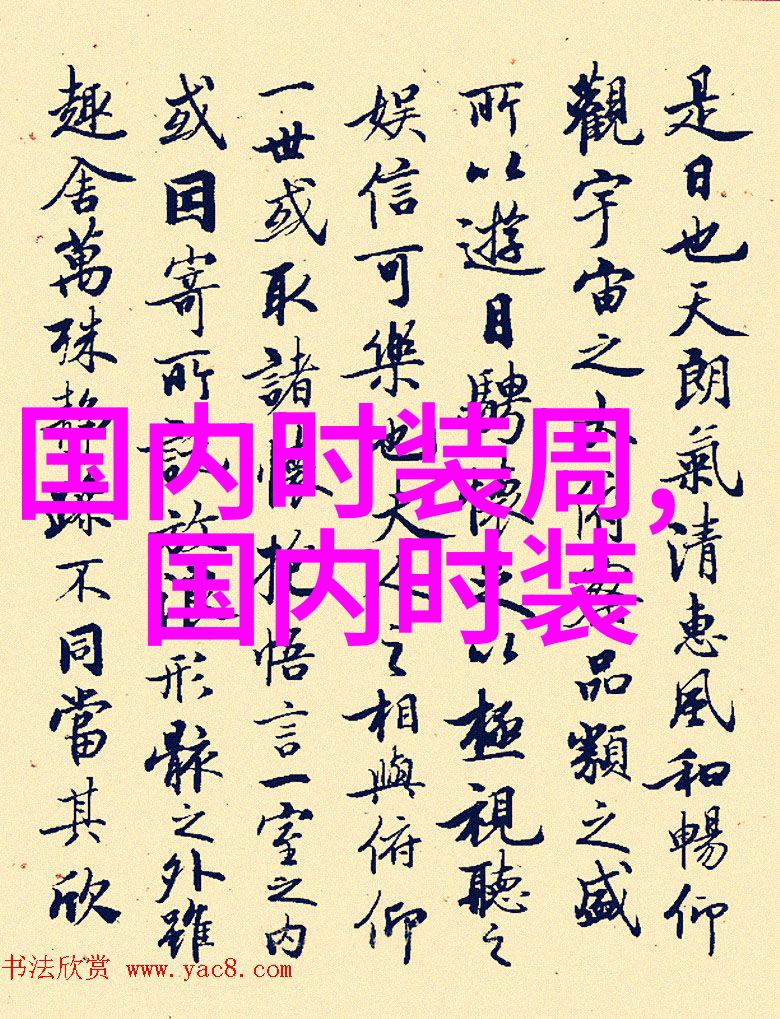 是日也天朗氣清惠風和暢仰
觀宇宙之大俯察品類之盛
所以遊目騁懷足以極視聽之
娱信可樂也夫人之相與俯仰
一世或取諸懷抱悟言一室之内
或因寄所託放浪形骸之外雖
趣舍萬殊靜躁不同當其欣
国内时装周，
国内时装
书法欣赏 www.yac8.com